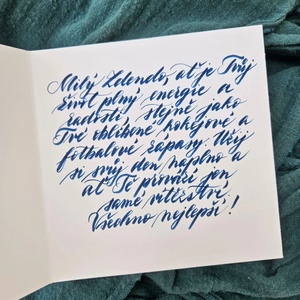 Milý Zdendo, ať je Tvůj
život plný energie a
radosti, stejně jako
Tvé oblíbené hokejové a
fotbalové zápasy. Užij
si svůj den naplno a
ať Tě provází jen
samé vítězství.
Všechno nejlepší!